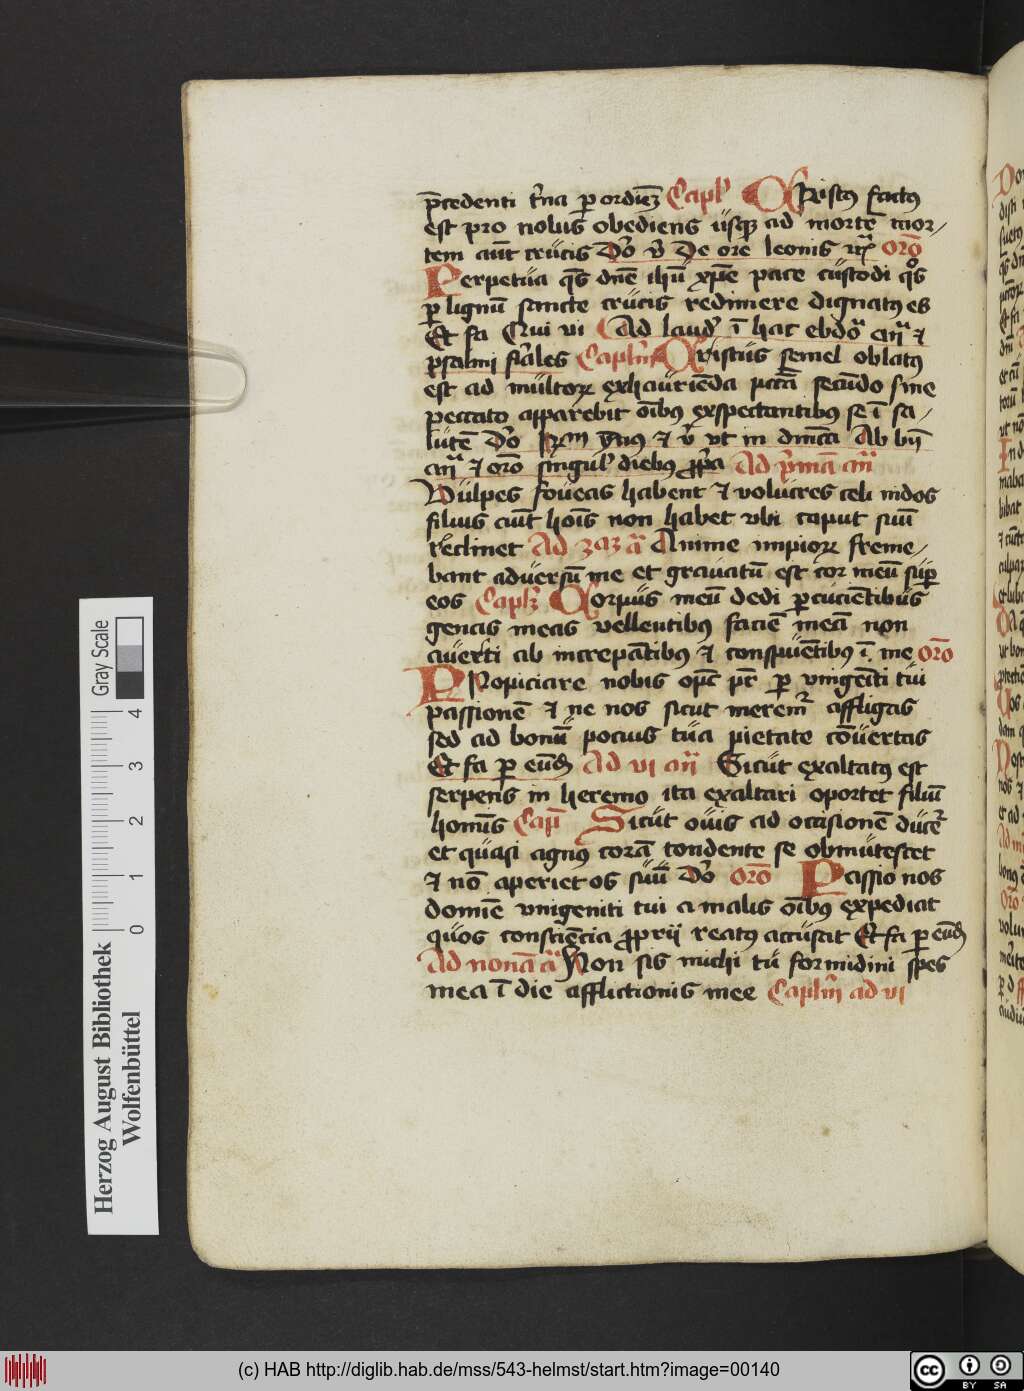 p̄cedenti f̄ria ꝑ ordinē Capl' Christus factus
est pro nobis obediens usque ad mortē mor-
tem aūt crucis Dō v̄ De ore leonis Orō
Perpetua q̄s dn̄e ihū xp̄e pace custodi q̄s
ꝑ lignū sancte crucis redimere dignatus es
Et fa Qui vi Ad laud' ī hac ebdōa an̄ ⁊
psalmi fiales Caplm̄ Christus semel oblatus
est ad multorꝝ exhaurienda pctā secūdo sine
peccato apparebit oībus exspectantibus se ī sa-
lutē Dō ymnus ⁊ v̄ ut in dn̄ica Ab bn̄
an̄ ⁊ orō singul' diebus ꝓpa Ad p̄mā an̄
Vulpes foueas habent ⁊ volucres celi nidos
filius aūt hoīs non habet vbi caput suū
reclinet Ad ā Anime impiorꝝ freme-
bant aduersū me et grauatū est cor meū suꝑ
eos Capl' Corpus meū dedi ꝑcucientibus
genas meas vellentibus faciē meā non
auerti ab increpātibus ⁊ conspuentibus ī me Orō
Propiciare nobis opc̄ pc̄ ꝑ vnigeniti tui
passionē ⁊ ne nos sicut meremr̄ affligas
sed ad bonū pocius tua pietate cōuertas
Et fa ꝑ eund' Ad vi an̄ Sicut exaltatus est
serpens in heremo ita exaltari oportet filiū
homīs Cap̄ Sicut ouis ad occisionē ducr̄
et quasi agnus corā tondente se obmutescet
⁊ nō aperiet os suū Dō orō Passio nos
domīe vnigeniti tui a malis oībus expediat
quos consciēcia ꝓprii reatus accusat Et fa ꝑ eund'
Ad nonā ā Non sis michi tu formidini spes
mea ī die afflictionis mee Caplm̄ ad vi
Gray Scale
4
3
2
1
0
Herzog August Bibliothek
Wolfenbüttel
(c) HAB http://diglib.hab.de/mss/543-helmst/start.htm?image=00140
cc
BY SA